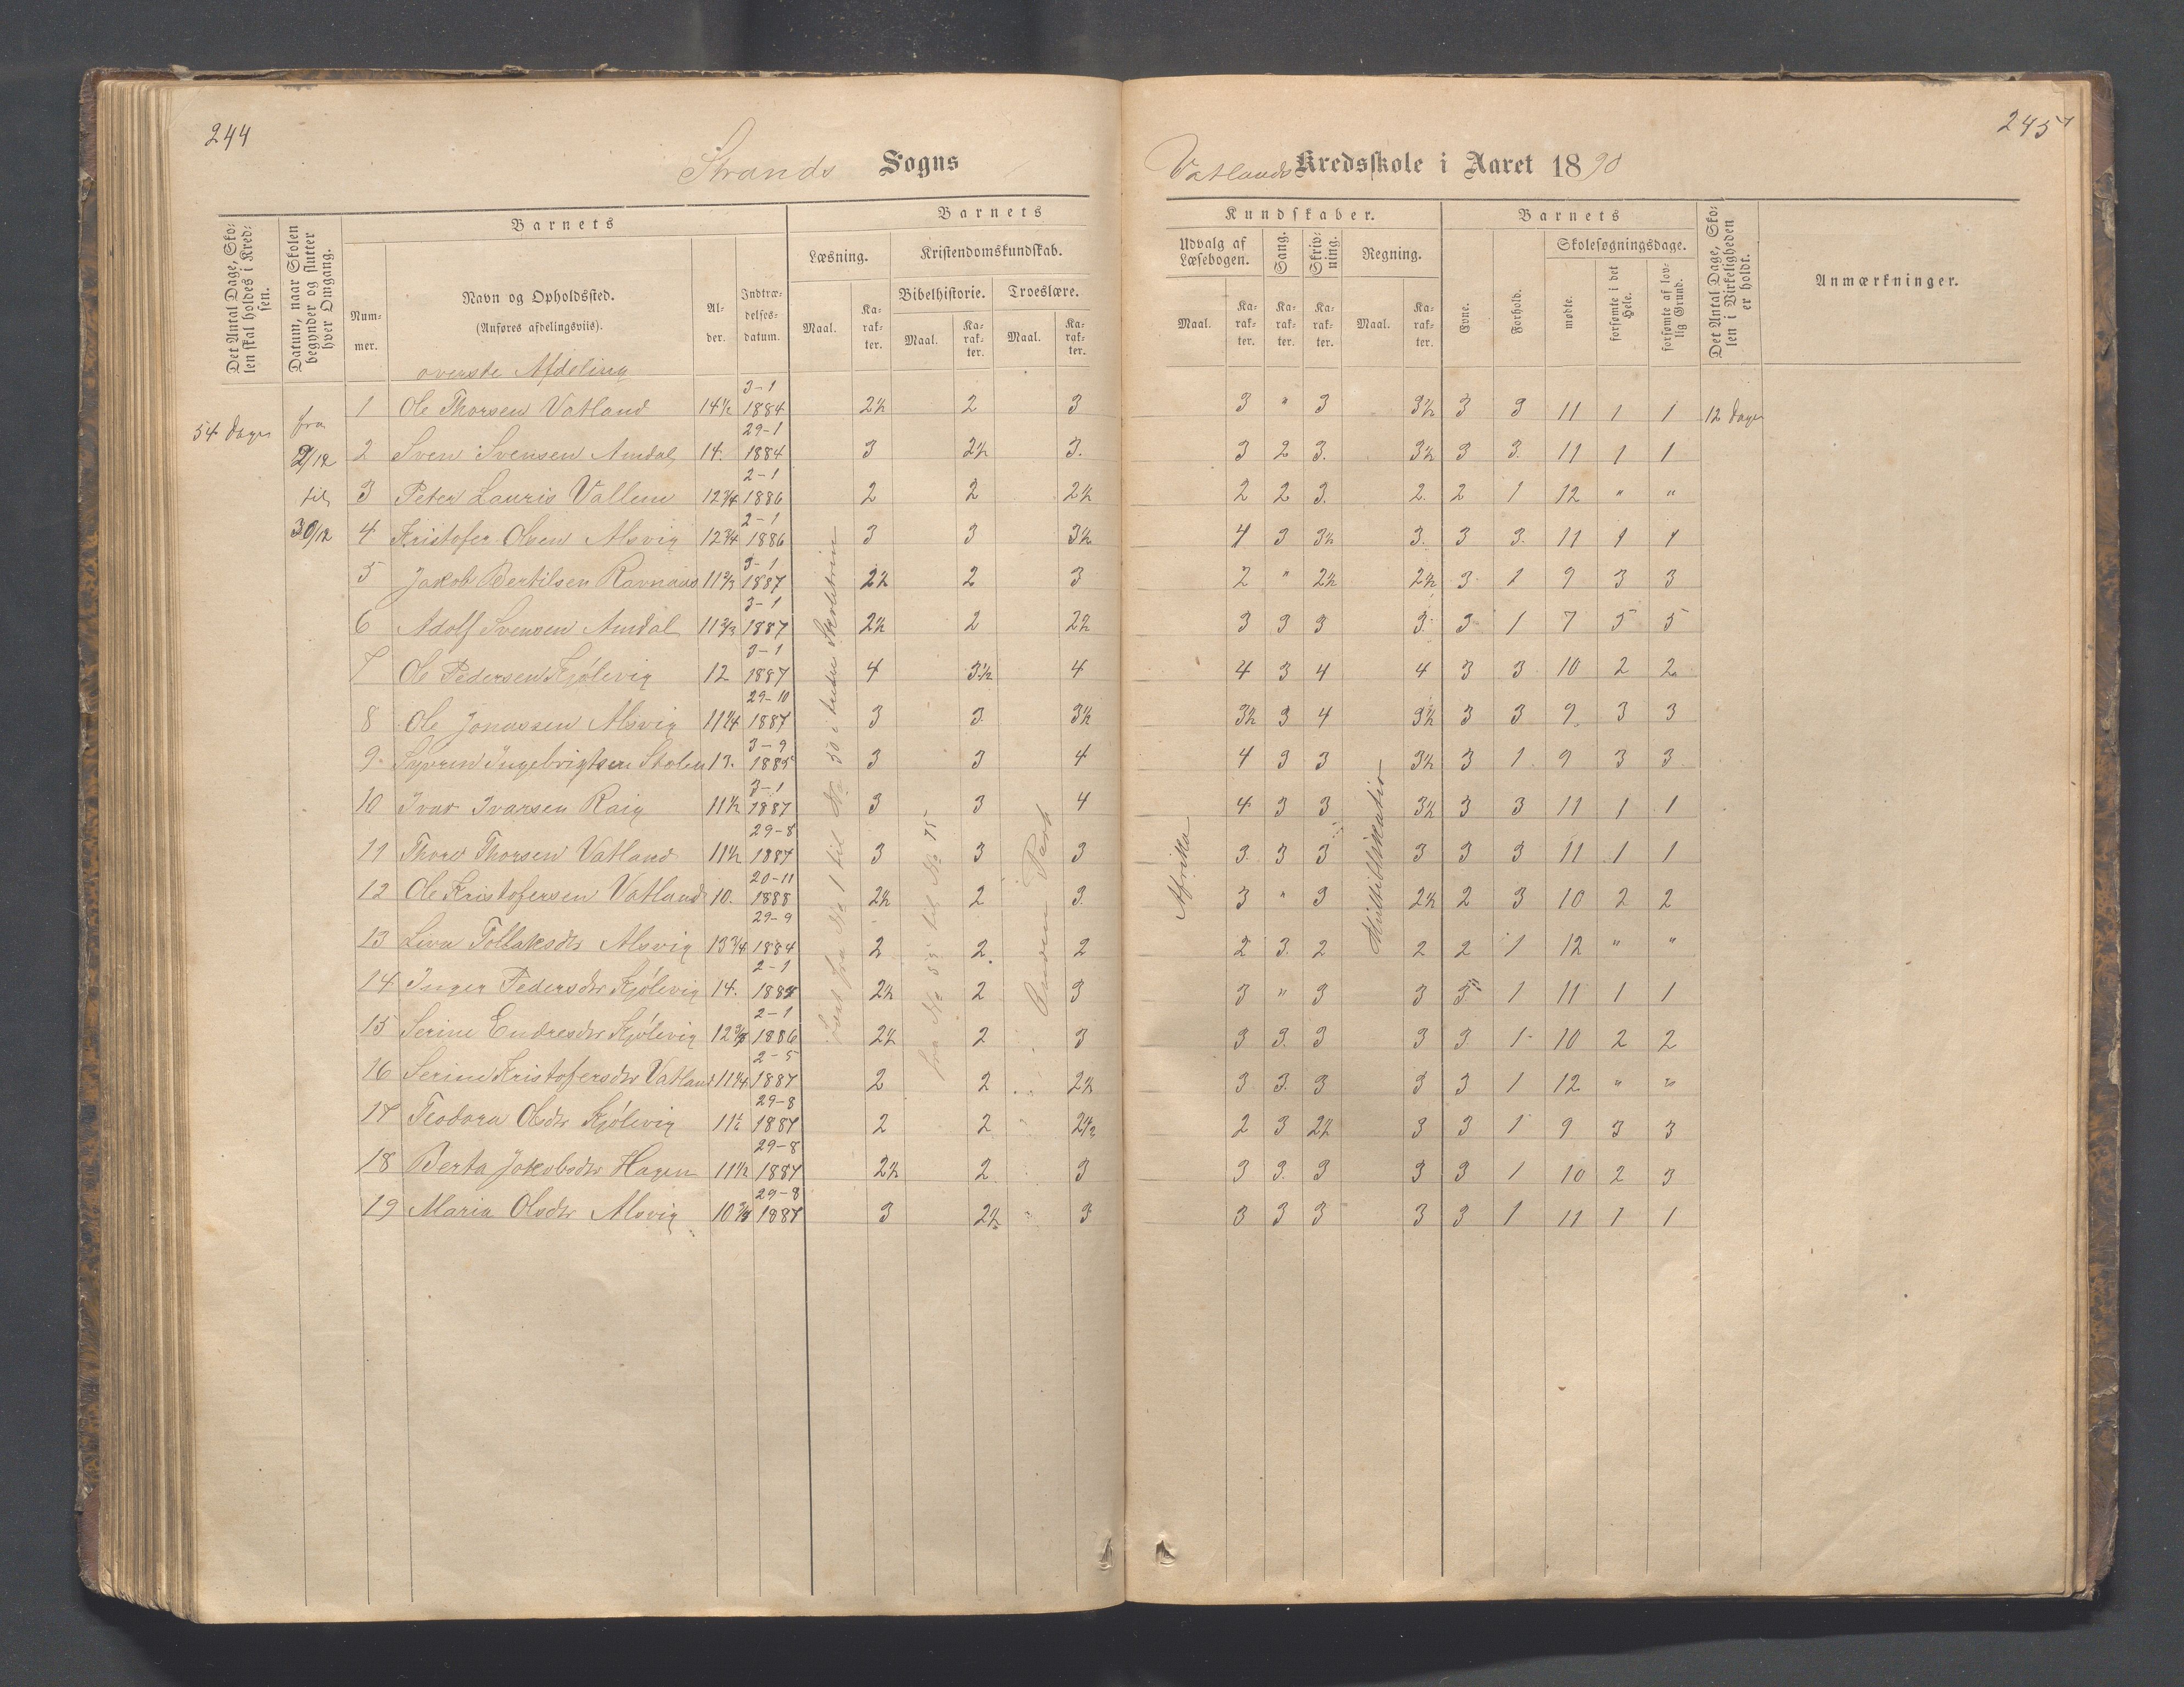 244
245
Strands Sogns
Vatlands Kredsskole i Aaret 1890
Det Antal Dage, Skolen skal holdes i Kredsen.
Datum, naar Skolen begynder og slutter hver Omgang.
Barnets
Nummer.
Navn og Opholdssted.
(Anføres afdelingsviis).
Alder.
Indtrædelsesdatum.
Barnets
Læsning.
Kristendomskundskab.
Bibelhistorie.
Troeslære.
Maal.
Karakter.
Maal.
Karakter.
Maal.
Karakter.
Kundskaber.
Udvalg af Læsebogen.
Sang.
Skrivning.
Regning.
Maal.
Karakter.
Karakter.
Karakter.
Maal.
Karakter.
Barnets
Evne.
Forhold.
Skolesøgningsdage.
mødte.
forsømte i det Hele.
forsømte af lovlig Grund.
Det Antal Dage, Skolen i Virkeligheden er holdt.
Anmærkninger.
øverste Afdeling
54 dage
fra
2/12
til
30/12
12 dage
1 Ole Thorsen Vatland 14½ 3-1 1884 2½ 2 3 3 " 3 3½ 3 3 11 1 1
2 Sven Svensen Amdal 14. 29-1 1884 3 2½ 3. 3 2 3. 3½ 3 3. 11 1 1
3 Peter Lauris Vallem 12¾ 2-1 1886 2 2 2½ 2 2 3. 2. 2 1 12 " "
4 Kristofer Olsen Alsvig 12¾ 2-1 1886 3 3 3½ 4 3 3½ 3. 3 3. 11 1 1
5 Jakob Bertilsen Ravnaas 11⅔ 3-1 1887 2½ 2 3 2 " 2½ 2½ 3 1 9 3 3
6 Adolf Svensen Amdal 11⅔ 3-1 1887 2½ 2 2½ 3 3 3 3. 3 1 7 5 5
7 Ole Pedersen Kjølevig 12 3-1 1887 4 3½ 4 4 3 4 4 3 3 10 2 2
8 Ole Jonassen Alsvig 11¼ 29-10 1887 3 3. 3½ 3½ 3 4 3½ 3 3 9 3 3
9. Syvren Ingebrigtsen Stolen 13. 3-9 1885 3 3 4 4 3 3 3½ 3 1 9 3 3
10 Ivar Ivarsen Raig 11½ 3-1 1887 3 3 4 4 3 3 3½ 3 3 11 1 1
11 Thore Thorsen Vatland 11½ 29-8 1887 3 3 3 3. 3 3 3 3 3 11 1 1
12 Ole Kristofersen Vatland 10. 20-11 1888 2½ 2 3. 3 " 3 2½ 2 3 10 2 2
13 Lera Tollaksdtr Alsvig 13¾ 29-9 1884 2 2. 2 2 3. 2 2 2 1 12 " "
14 Inger Pedersdtr Kjølevig 14. 2-1 1884 2½ 2 3 3 " 3 3 3 1 11 1 1
15 Serine Endresdtr Kjølevig 12⅔ 2-1 1886 2½ 2 3 3 3. 3 3 3 1 10 2 2
16 Serine Kristofersdtr Vatland 11¼ 2-5 1887 2 2 2½ 3 3. 3 3 3 1 12 " "
17 Teodora Olsdtr Kjølevig 11½ 29-8 1887 2 2 2½ 2 3 2½ 3 3 1 9 3 3
18 Berta Jakobsdtr Hagen 11½ 29-8 1887 2½ 2. 3 3 3. 3 3 3 1 10 2 3
19 Maria Olsdtr Alsvig 10¾ 29-8 1887 3 2½ 3 3 3 3 3 3 1 11 1 1
læst fra No 1 til No 50 i
fra No 59 til No 75
Anden Part
Afrika
Multiblikation